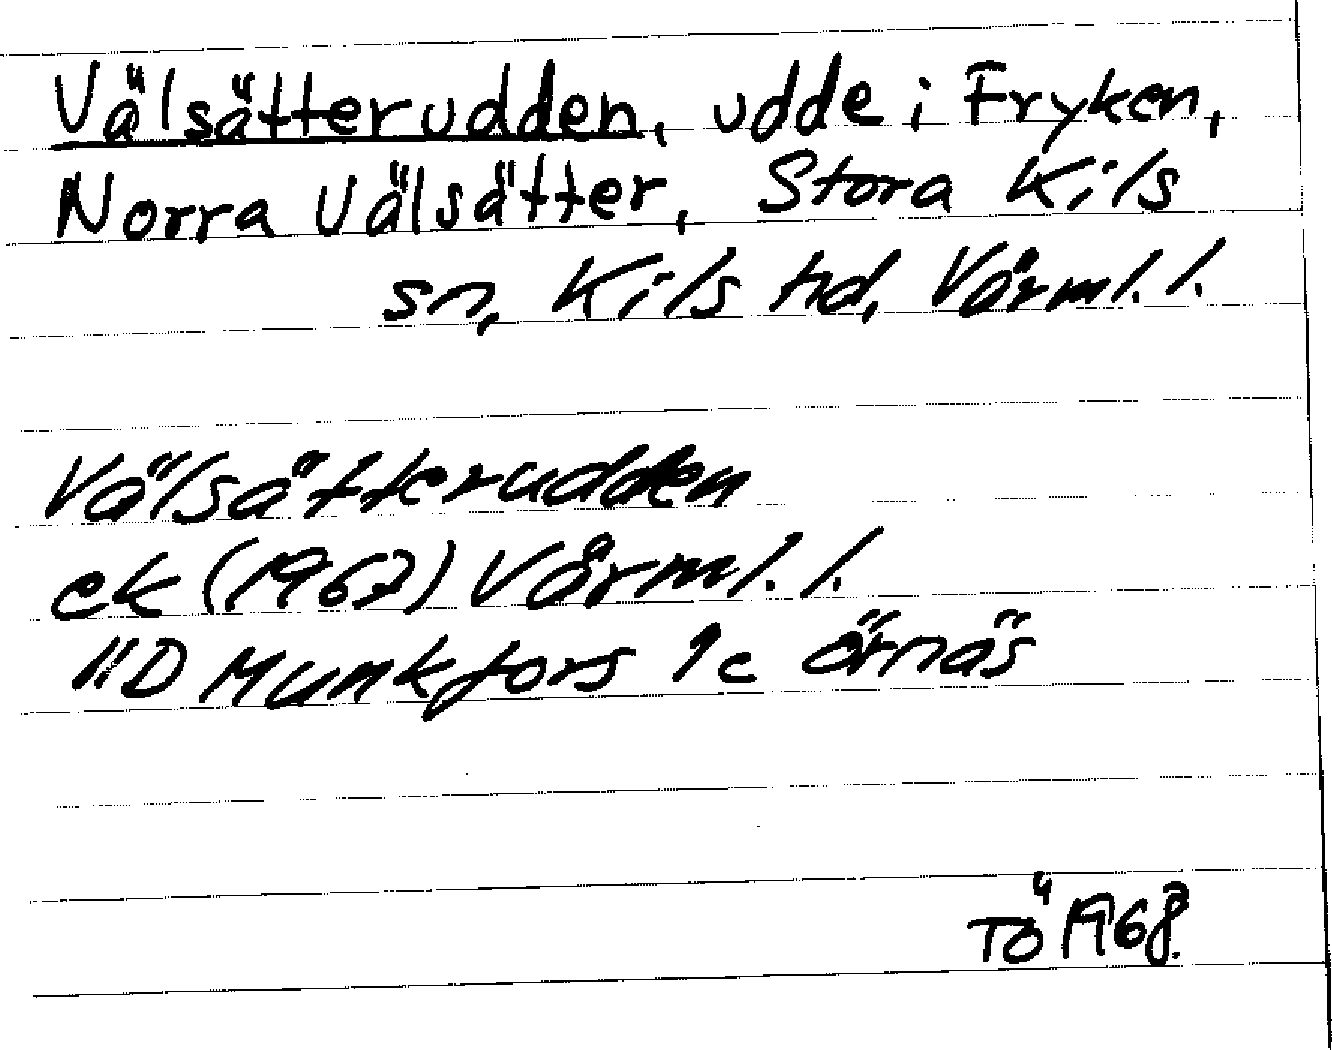 Välsätterudden, udde i Fryken,
Norra Välsätter, Stora Kils
sn, Kils hd, Värml. l.
Välsätterudden
ek (1967) Värml. l.
11D Munkfors 1c Örnäs
TÖ 1968.